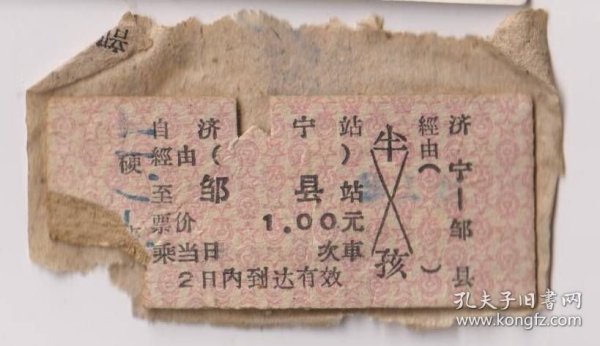 自济宁站
經由( )
至邹县站
票价 1.00元
乘当日 次車
2日内到达有效
硬
半
孩
济宁—邹县
經由( )
孔夫子旧书网
www.kongfz.com